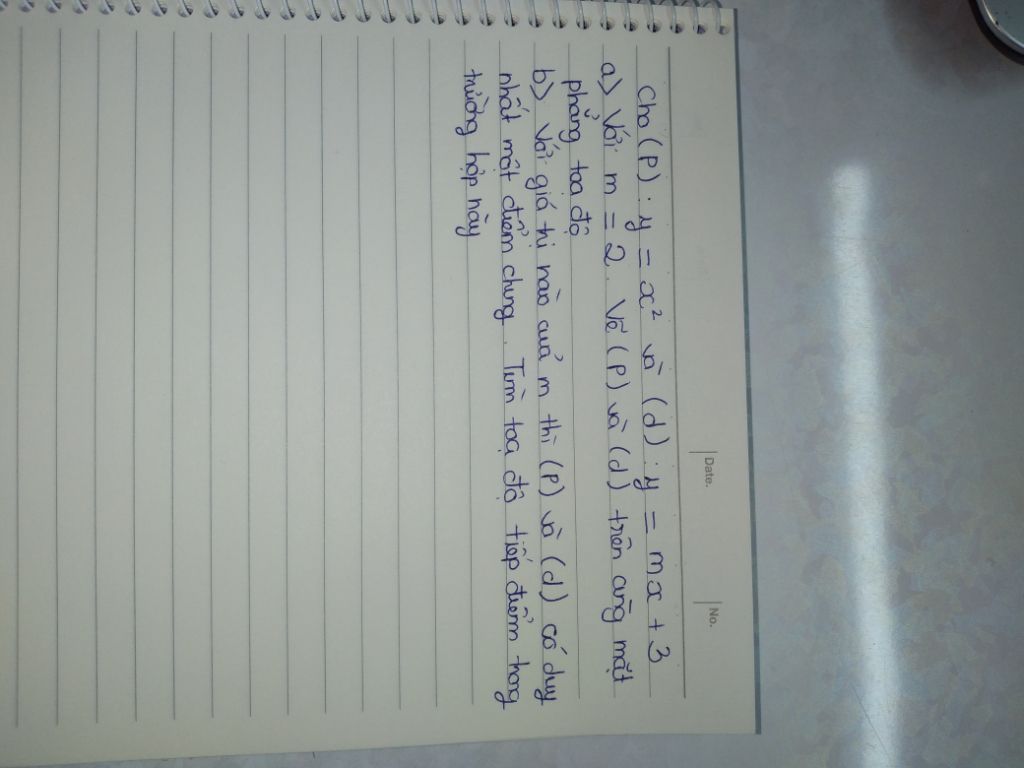 Date.
No.
Cho (P) : y = x² và (d) : y = mx + 3
a) Với m = 2. Vẽ (P) và (d) trên cùng mặt
phẳng toạ độ
b) Với giá trị nào của m thì (P) và (d) có duy
nhất một điểm chung. Tìm toạ độ tiếp điểm trong
trường hợp này